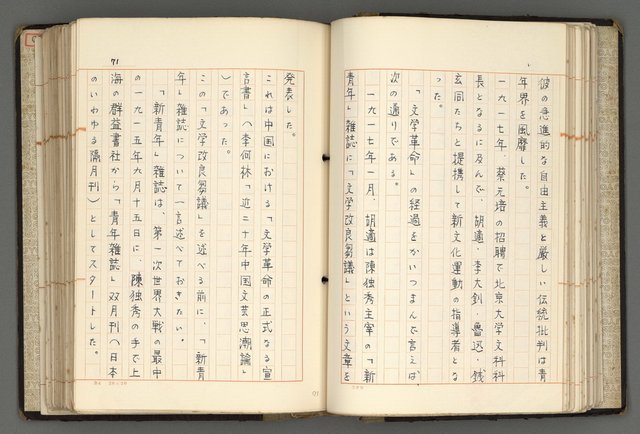 彼の急進的な自由主義と厳しい伝統批判は青
年界を風靡した。
一九一七年、蔡元培の招聘で北京大学文科科
長となるに及んで、胡適・李大釗・魯迅・銭
玄同たちと提携して新文化運動の指導者とな
った。
「文学革命」の経過をかいつまんで言えば、
次の通りである。
一九一七年一月、胡適は陳独秀主宰の「新
青年」雑誌に「文学改良芻議」という文章を
発表した。
これは中国における「文学革命の正式なる宣
言書」(李何林「近二十年中国文芸思潮論」
)であった。
この「文学改良芻議」を述べる前に、「新青
年」雑誌について一言述べておきたい。
「新青年」雑誌は、第一次世界大戦の最中
の一九一五年九月十五日に、陳独秀の手で上
海の群益書社から「青年雑誌」双月刊(日本
のいわゆる隔月刊)としてスタートした。
71
71
20×20